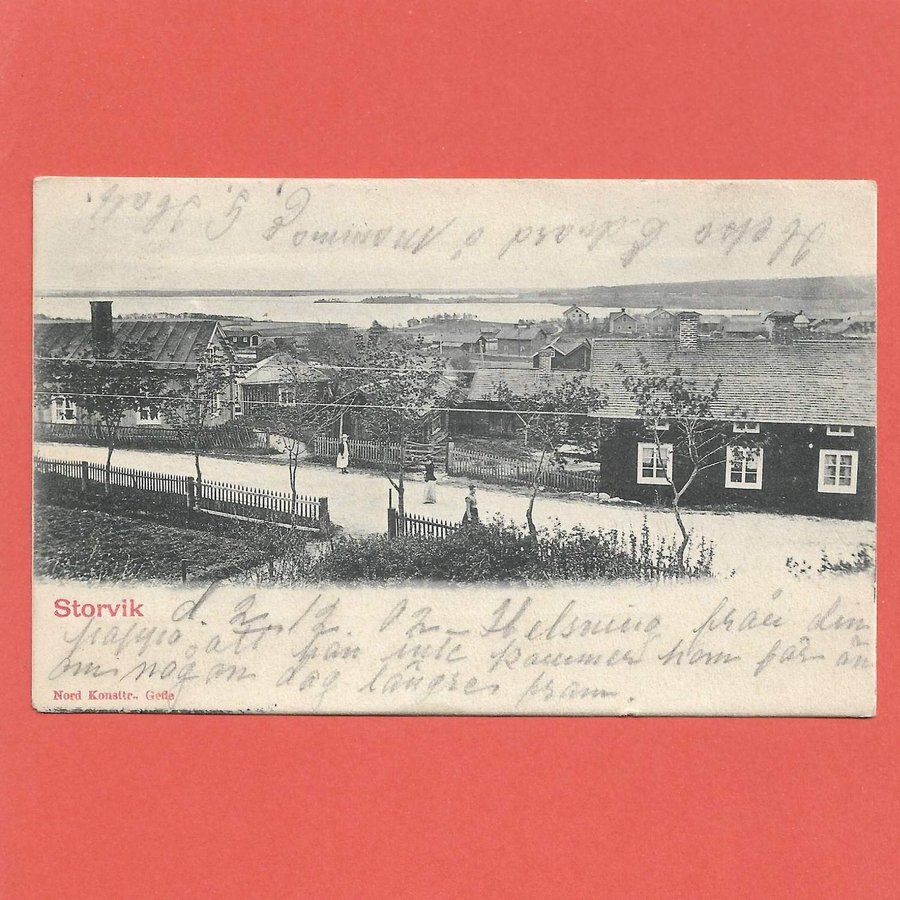 Helsa Edvard o Mamma
Storvik
d. 2/12 02 Helsning från din
pappa att han inte kommer hem får än
om någon dag längre fram.
Nord Konsttr., Gefle